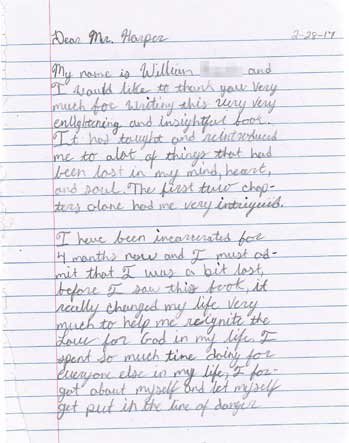 Dear Mr. Harper 2-28-17
My name is William and
I would like to thank you very
much for writing this very very
enlightening and insightful book.
It had taught and reintroduced
me to alot of things that had
been lost in my mind, heart,
and soul. The first two chap-
ters alone had me very intrigued.
I have been incarcerated for
4 months now and I must ad-
mit that I was a bit lost,
before I saw this book, it
really changed my life very
much to help me reignite the
love for God in my life. I
spent so much time doing for
everyone else in my life, I for-
got about myself and let myself
get put in the line of danger